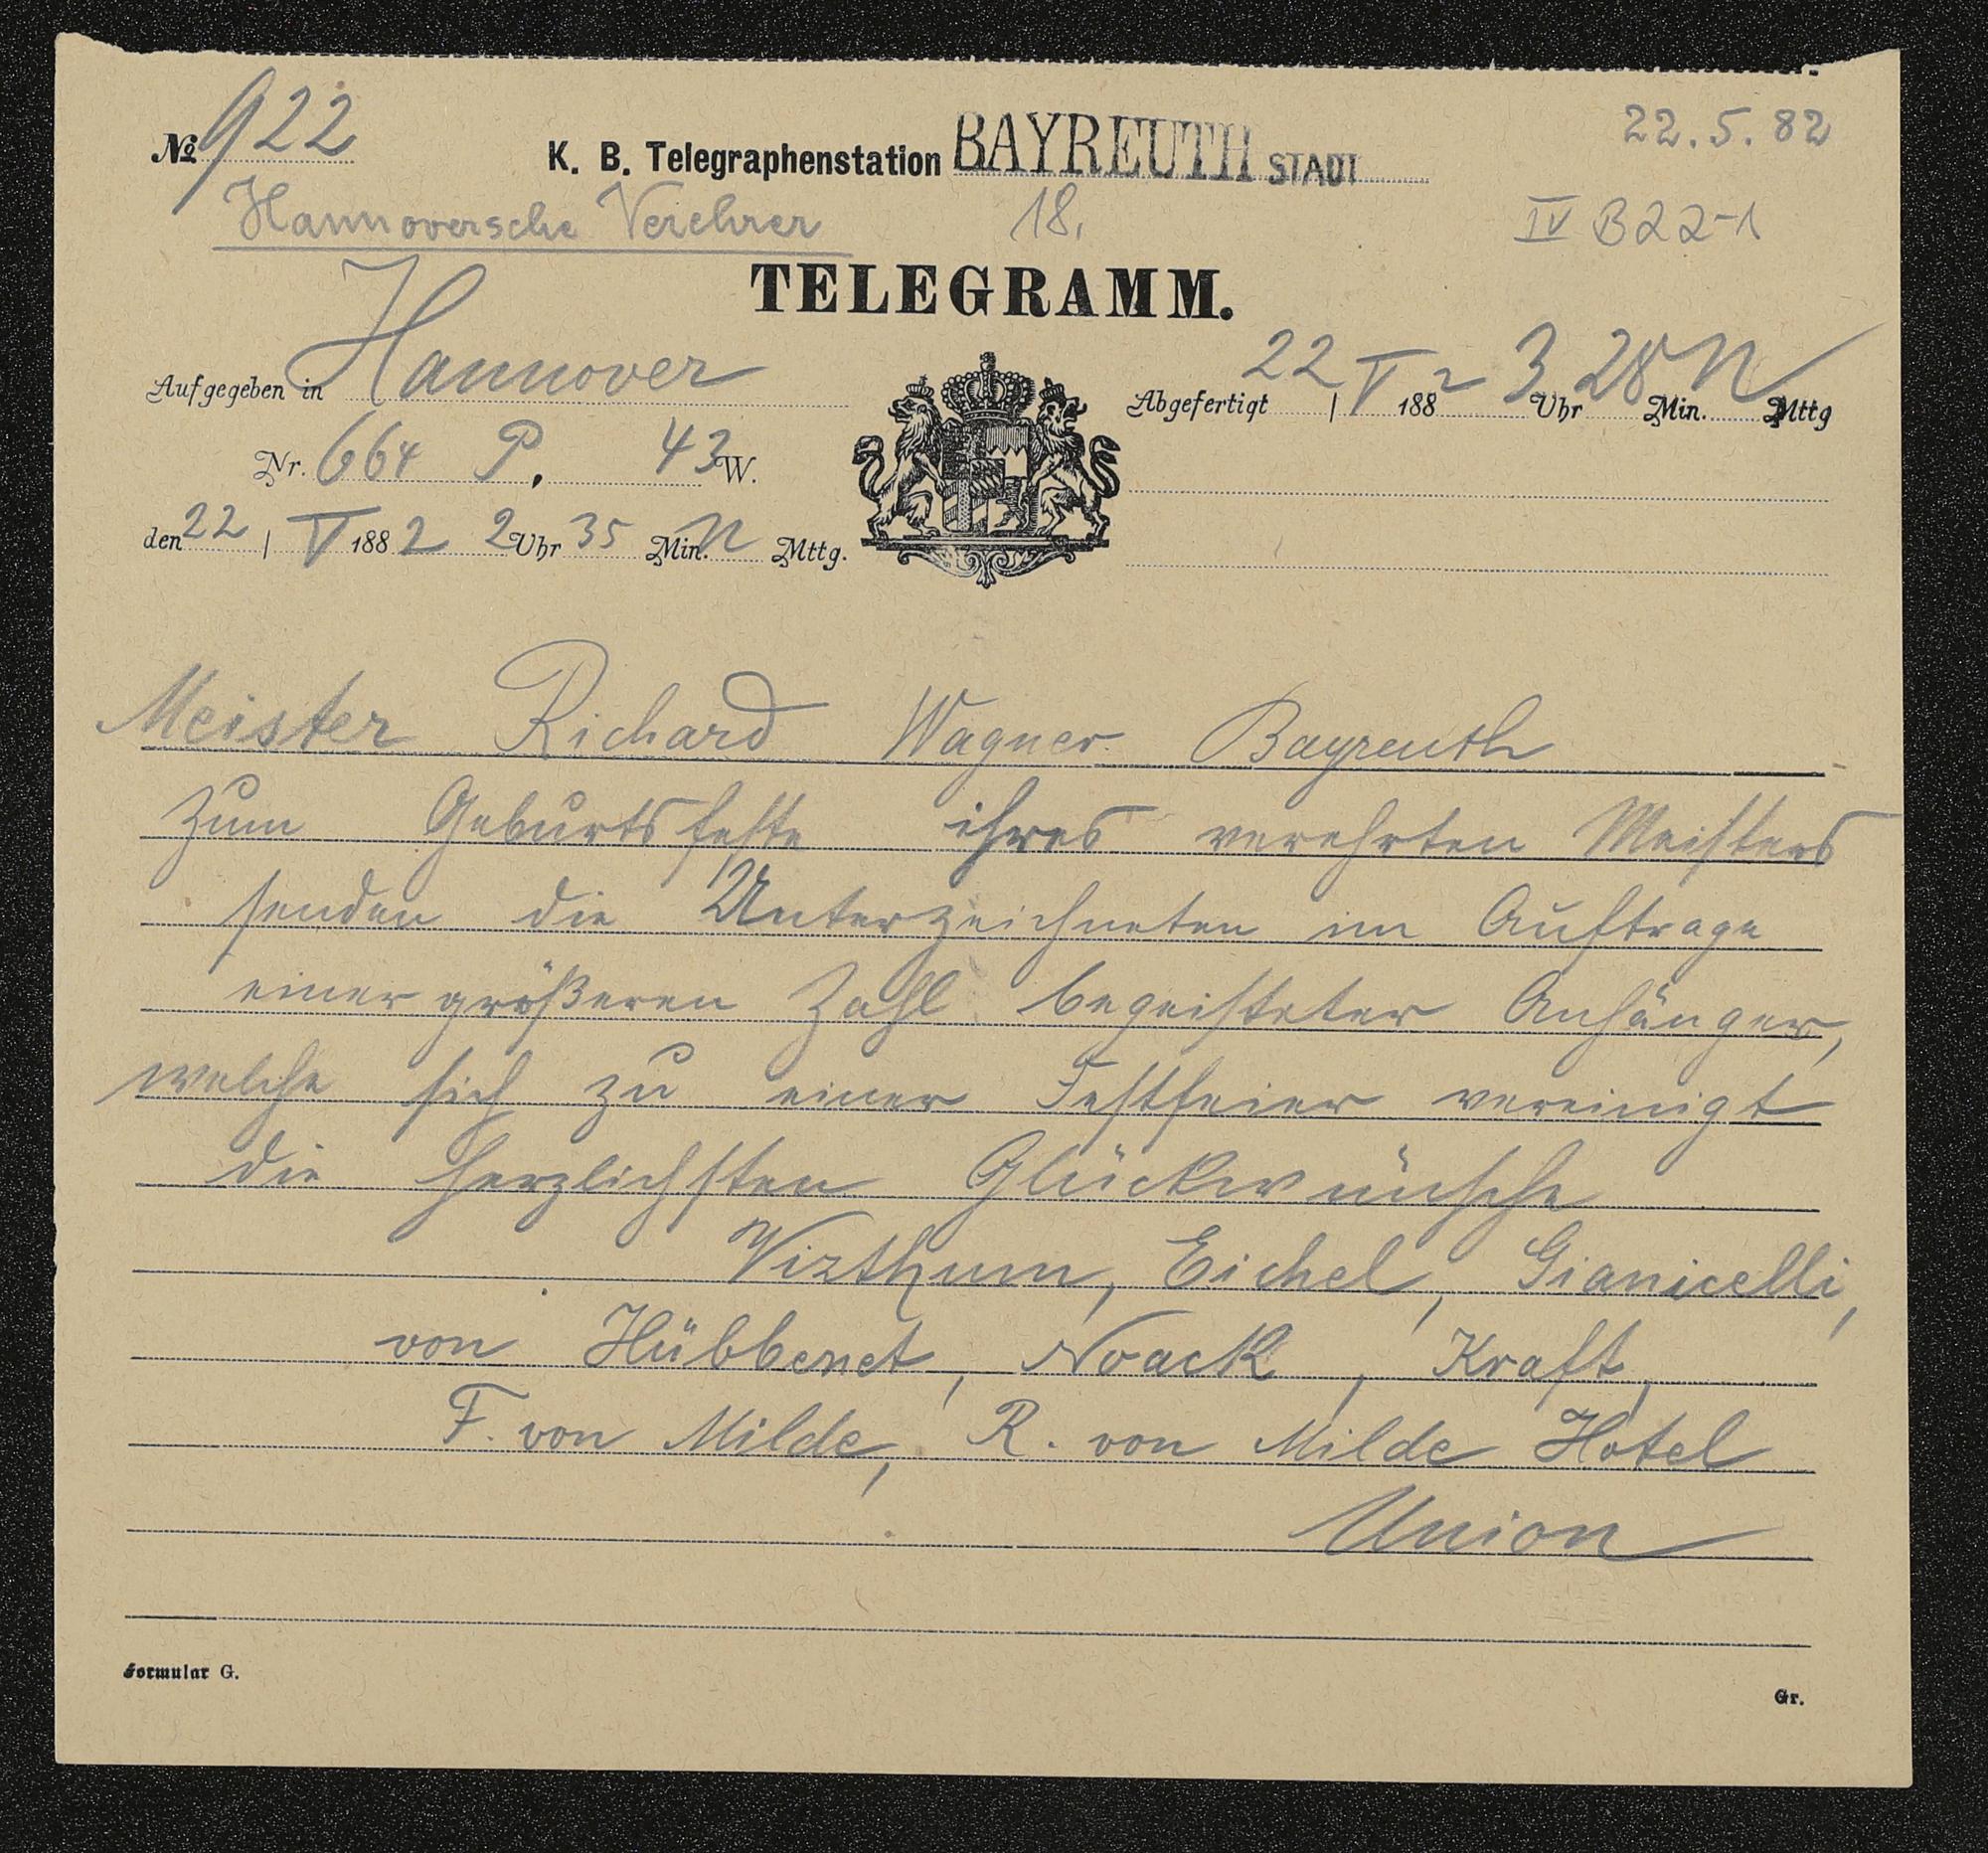 № 922
K. B. Telegraphenstation BAYREUTH STADT
22.5.82
Hannoversche Verehrer
18.
IV B 22-1
TELEGRAMM.
Aufgegeben in Hannover
Abgefertigt 22 / V 1882 3 Uhr 28 Min. N Mttg
Nr. 664 P. 43 W.
den 22 / V 1882 2 Uhr 35 Min. N Mttg.
Meister Richard Wagner Bayreuth
Zum Geburtsfeste ihres verehrten Meisters
senden die Unterzeichneten im Auftrage
einer größeren Zahl begeisteter Anhänger,
welche sich zu einer Festfeier vereinigt
die herzlichsten Glückwünsche
Vizthum, Eichel, Gianicelli,
von Hübbenet, Noack, Kraft,
F. von Milde, R. von Milde Hotel
Union
Formular G.
Gr.